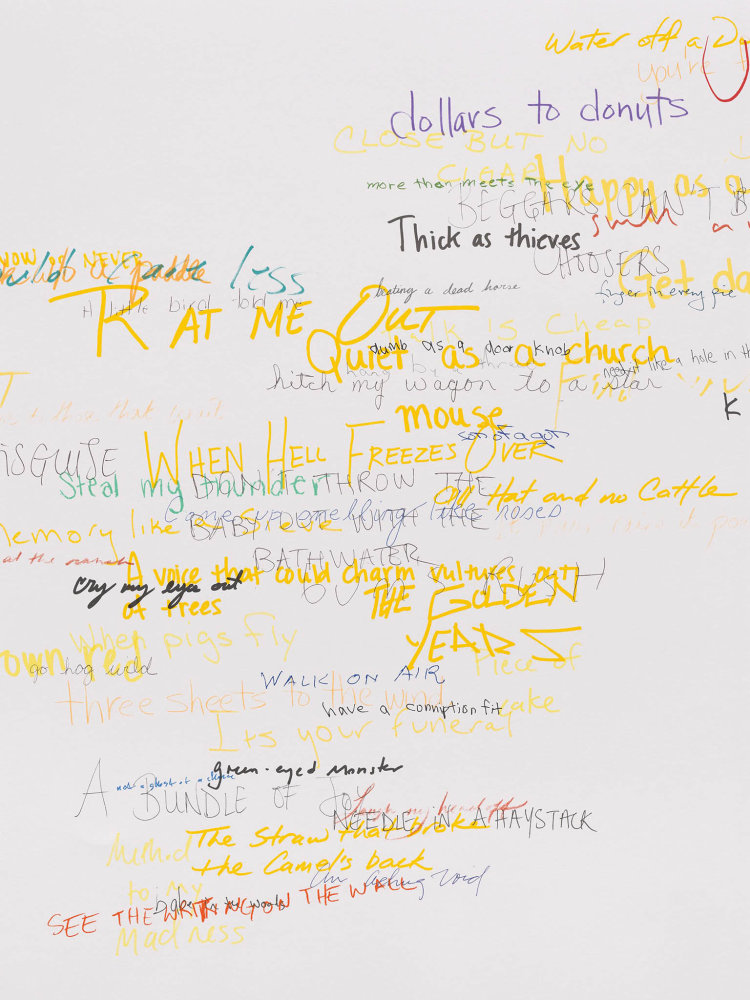 Water off a Du
you're
dollars to donuts
CLOSE BUT NO
CIGAR
Happy as a
more than meets the eye
BEGGARS CAN'T B
CHOOSERS
Thick as thieves
NOW or NEVER
paddle
less
Get da
A little bird told me
beating a dead horse
finger in every pie
RAT ME OUT
Talk is Cheap
Quiet as a church
mouse
dumb as a door knob
need it like a hole in th
hang by a thread
hitch my wagon to a star
K
ISGUISE
WHEN HELL FREEZES OVER
son of a gun
Steal my thunder
DON'T THROW THE
BABY WITH THE
BATHWATER
All Hat and no Cattle
Come up smelling like roses
Memory like a Sieve
at the
A voice that could charm vultures out
of trees
cry my eyes out
THE GOLDEN
YEARS
When pigs fly
own
go hog wild
Piece of
cake
WALK ON AIR
three sheets to the wind
have a conniption fit
Its your funeral
green-eyed monster
not a ghost of a chance
A BUNDLE OF JOY
laugh my head off
NEEDLE IN A HAYSTACK
Method
to my
Madness
The Straw that broke
the Camel's back
void
SEE THE WRITING ON THE WALL